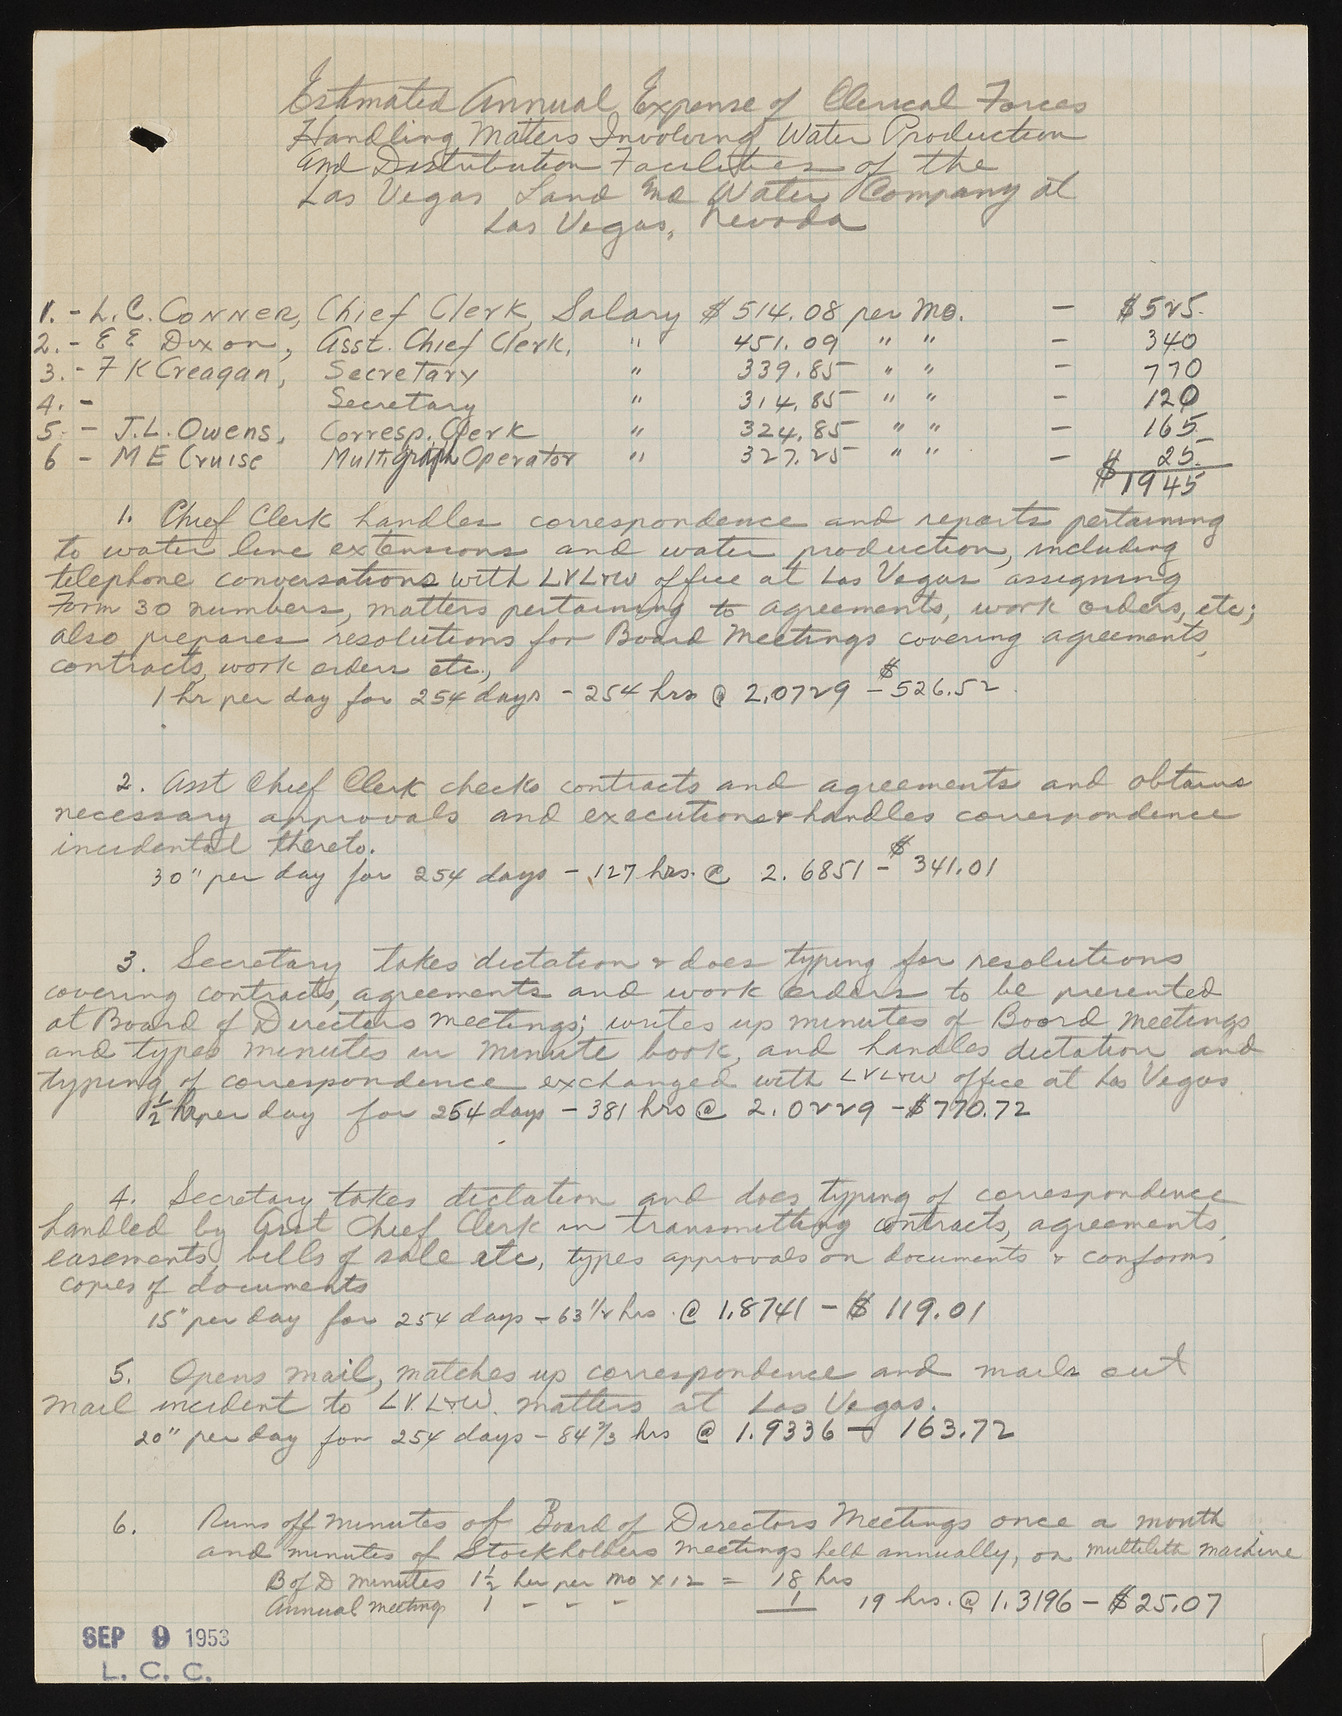 Estimated Annual Expense of Clerical Forces
Handling Matters Involving Water Production
And Distribution Facilities of the
Las Vegas Land And Water Company at
Las Vegas, Nevada
1. - L. C. Conner, Chief Clerk, Salary $514.08 per Mo. - $525.
2. - E E Dixon, Asst. Chief Clerk, " 451.09 " " - 340
3. - F K Creagan, Secretary " 339.85 " " - 770
4. - Secretary " 314.85 " " - 120
5 - J.L. Owens, Corresp. Clerk " 324.85 " " - 165
6 - M E Cruise Multigraph Operator " 327.25 " " - 25.
$1945
1. Chief Clerk handles correspondence and reports pertaining
to water line extensions and water production, including
telephone conversations with LVL&W office at Las Vegas assigning
Form 30 numbers, matters pertaining to agreements, work orders, etc;
also prepares resolutions for Board Meetings covering agreements,
contracts, work orders etc.,
1 hr per day for 254 days - 254 hrs @ 2.0729 - $526.52
2. Asst Chief Clerk checks contracts and agreements and obtains
necessary approvals and executions & handles correspondence
incidental thereto.
30" per day for 254 days - 127 hrs. @ 2.6851 - $341.01
3. Secretary takes dictation & does typing for resolutions
covering contracts, agreements and work orders to be presented
at Board of Directors meetings; writes up minutes of Board Meetings
and types minutes in minute book, and handles dictation and
typing of correspondence exchanged with LVL&W office at Las Vegas
1 1/2 hr per day for 254 days - 381 hrs @ 2.0229 - $770.72
4. Secretary takes dictation and does typing of correspondence
handled by Asst Chief Clerk in transmitting contracts, agreements,
easements, bills of sale etc, types approvals on documents & conforms
copies of documents
15" per day for 254 days - 63 1/2 hrs. @ 1.8741 - $119.01
5. Opens mail, matches up correspondence and mails out
mail incident to LVL&W. matters at Las Vegas.
20" per day for 254 days - 84 2/3 hrs @ 1.9336 - 163.72
6. Runs off minutes of Board of Directors Meetings once a month
and minutes of Stockholders meetings held annually, on multilith machine
B of D minutes 1 1/2 hr per mo x 12 = 18 hrs
Annual meeting 1 - - - 1 19 hrs. @ 1.3196 - $25.07
SEP 9 1953
L. C. C.